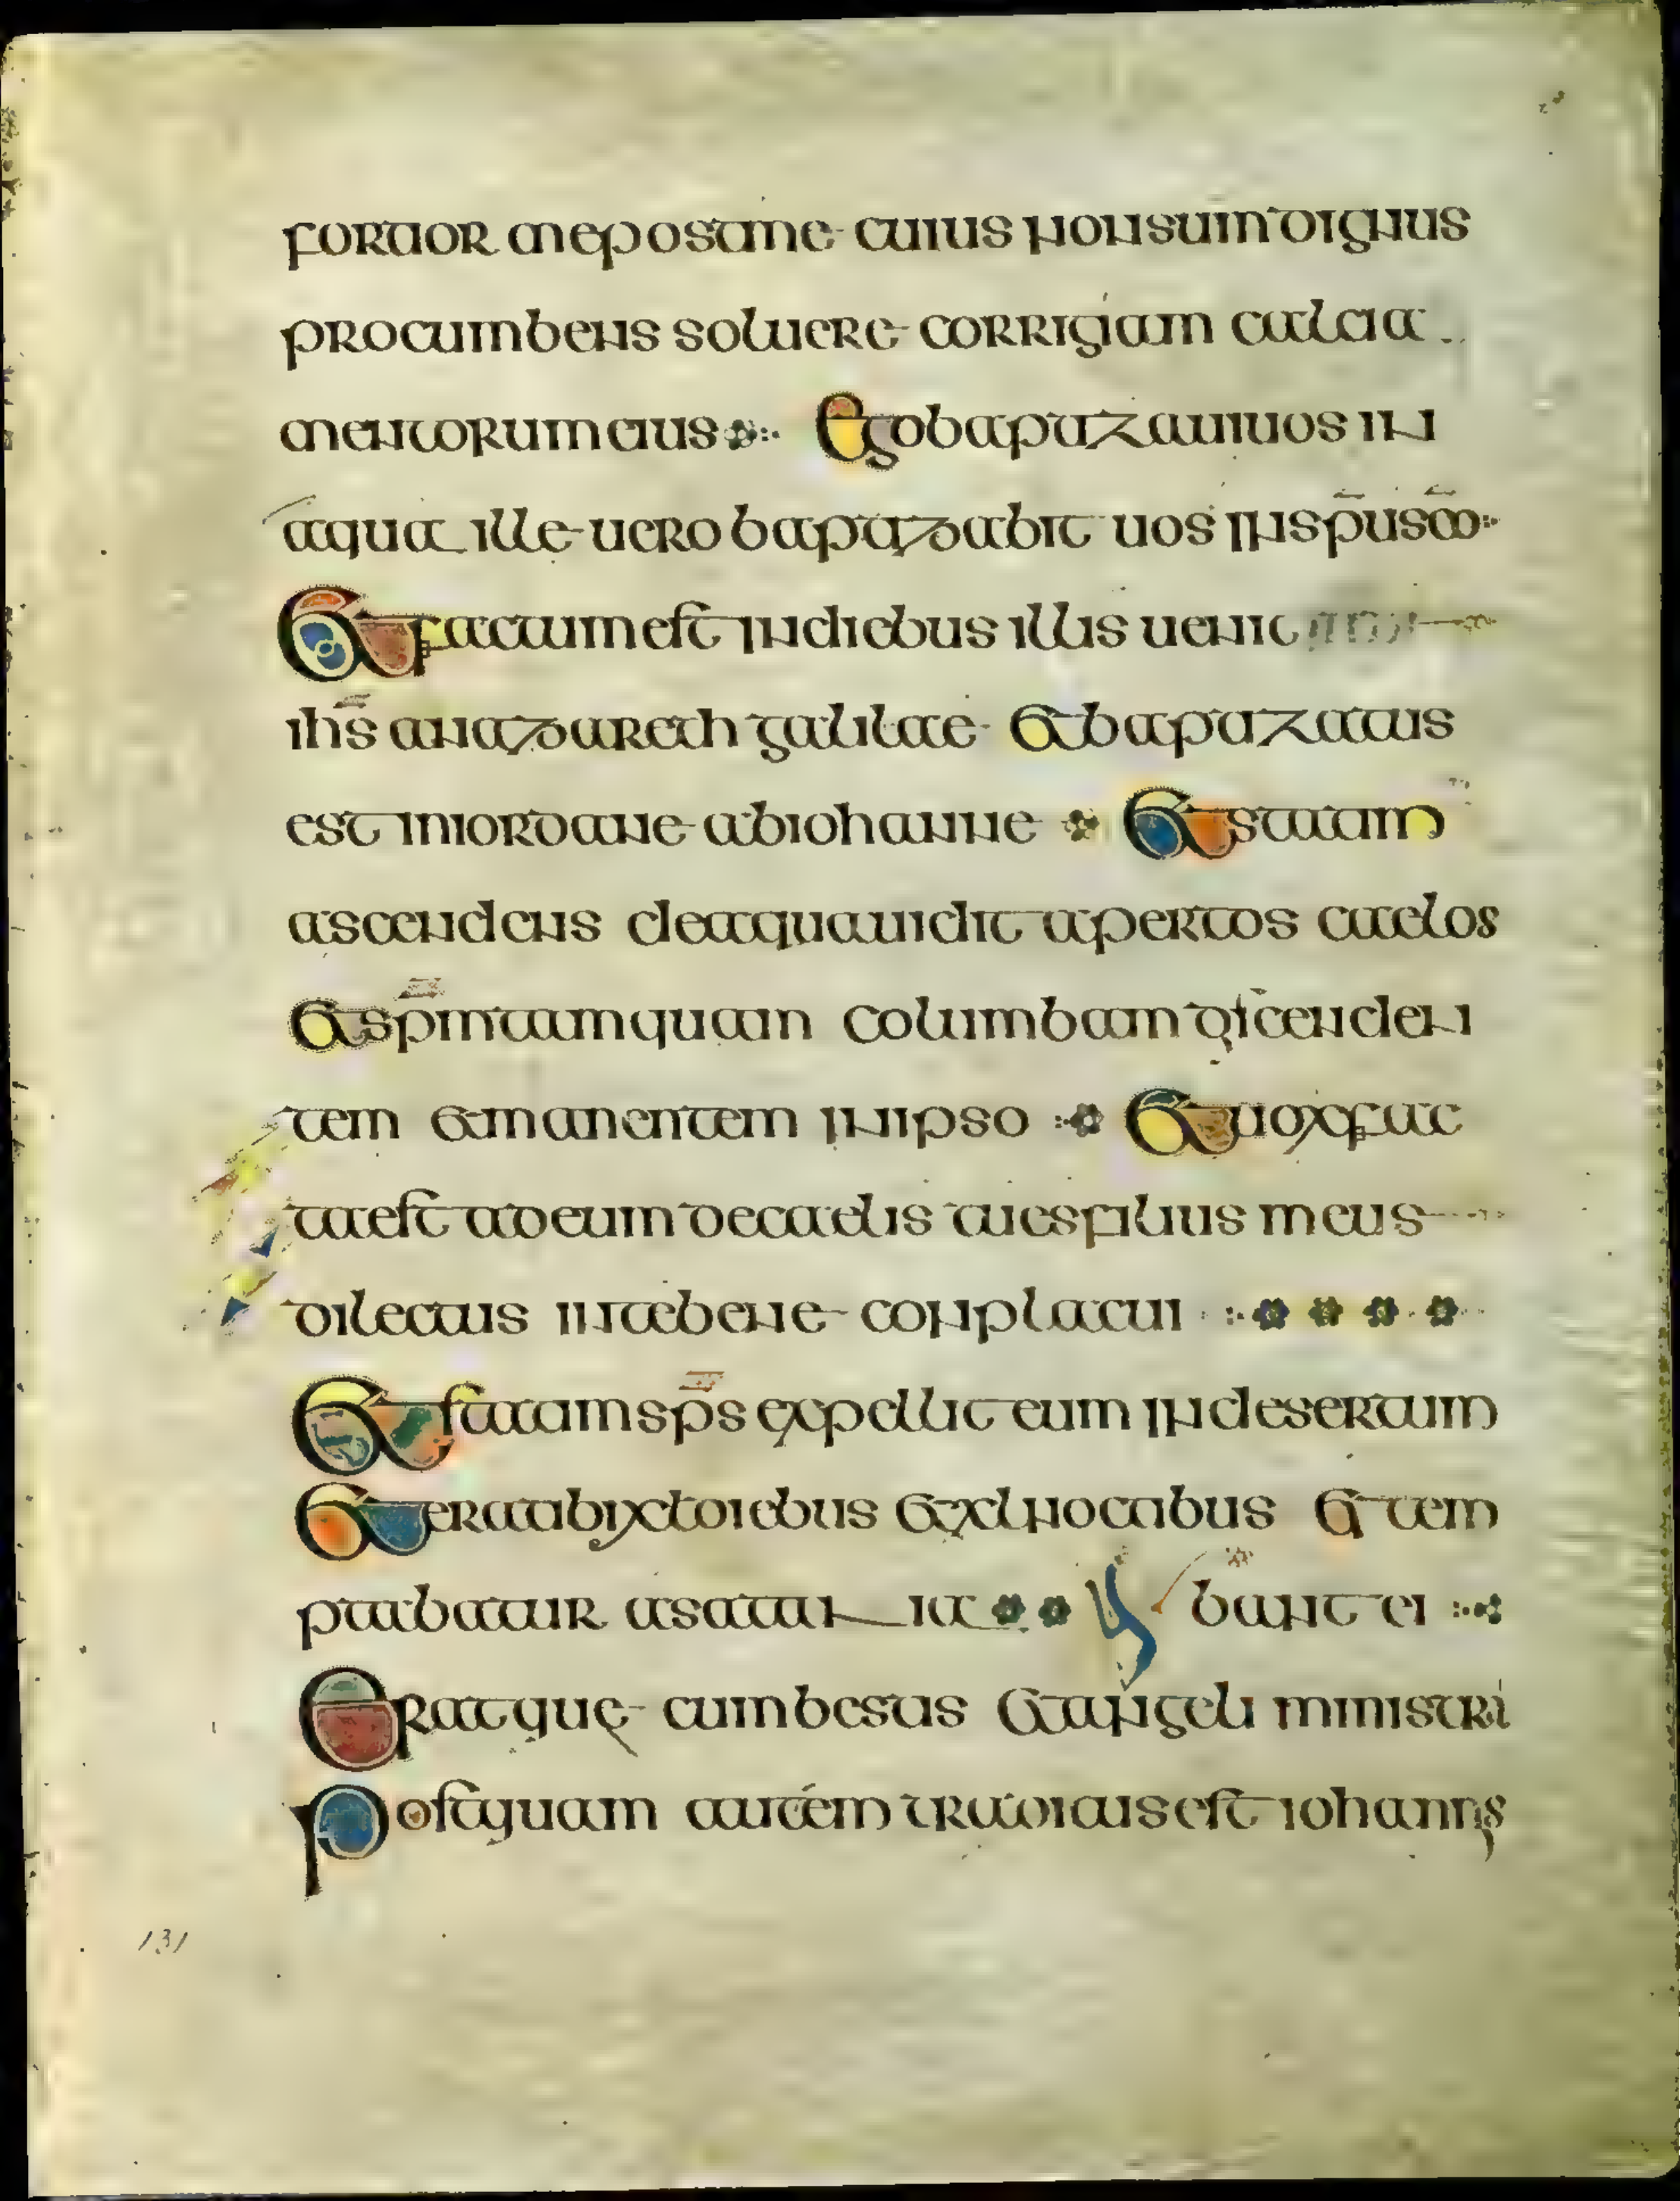 fortior me post me cuius non sum dignus
procumbens soluere corrigiam calcia
mentorum eius Ego baptizaui uos in
aqua ille uero baptizabit uos in sp̄u sc̄o
Et factum est in diebus illis uenit
ihs̄ a nazareth galilae et baptizatus
est in iordane ab iohanne Et statim
ascendens de aqua uidit apertos caelos
Et sp̄m tamquam columbam discenden
tem et manentem in ipso Et uox fac
ta est ad eum de caelis tu es filius meus
dilectus in te bene conplacui
Et statim sp̄s expellit eum in desertum
Et erat ab ixl diebus et xl noctibus et tem
ptabatur a satan ia bant ei
Eratque cum bestis et angeli ministri
Postquam autem traditus est iohannis
131